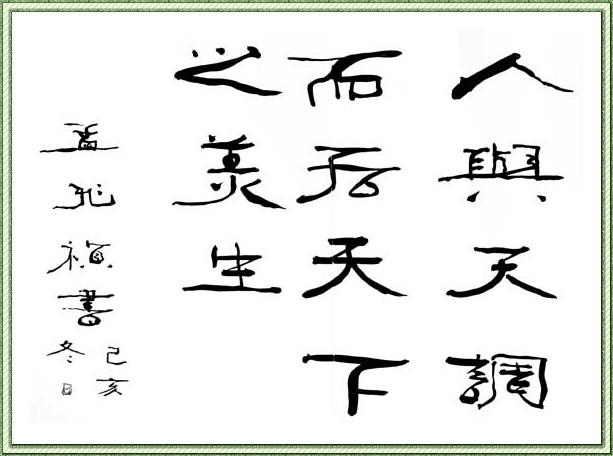 人與天調
而后天下
之美生
孟兆禎書
己亥
冬日